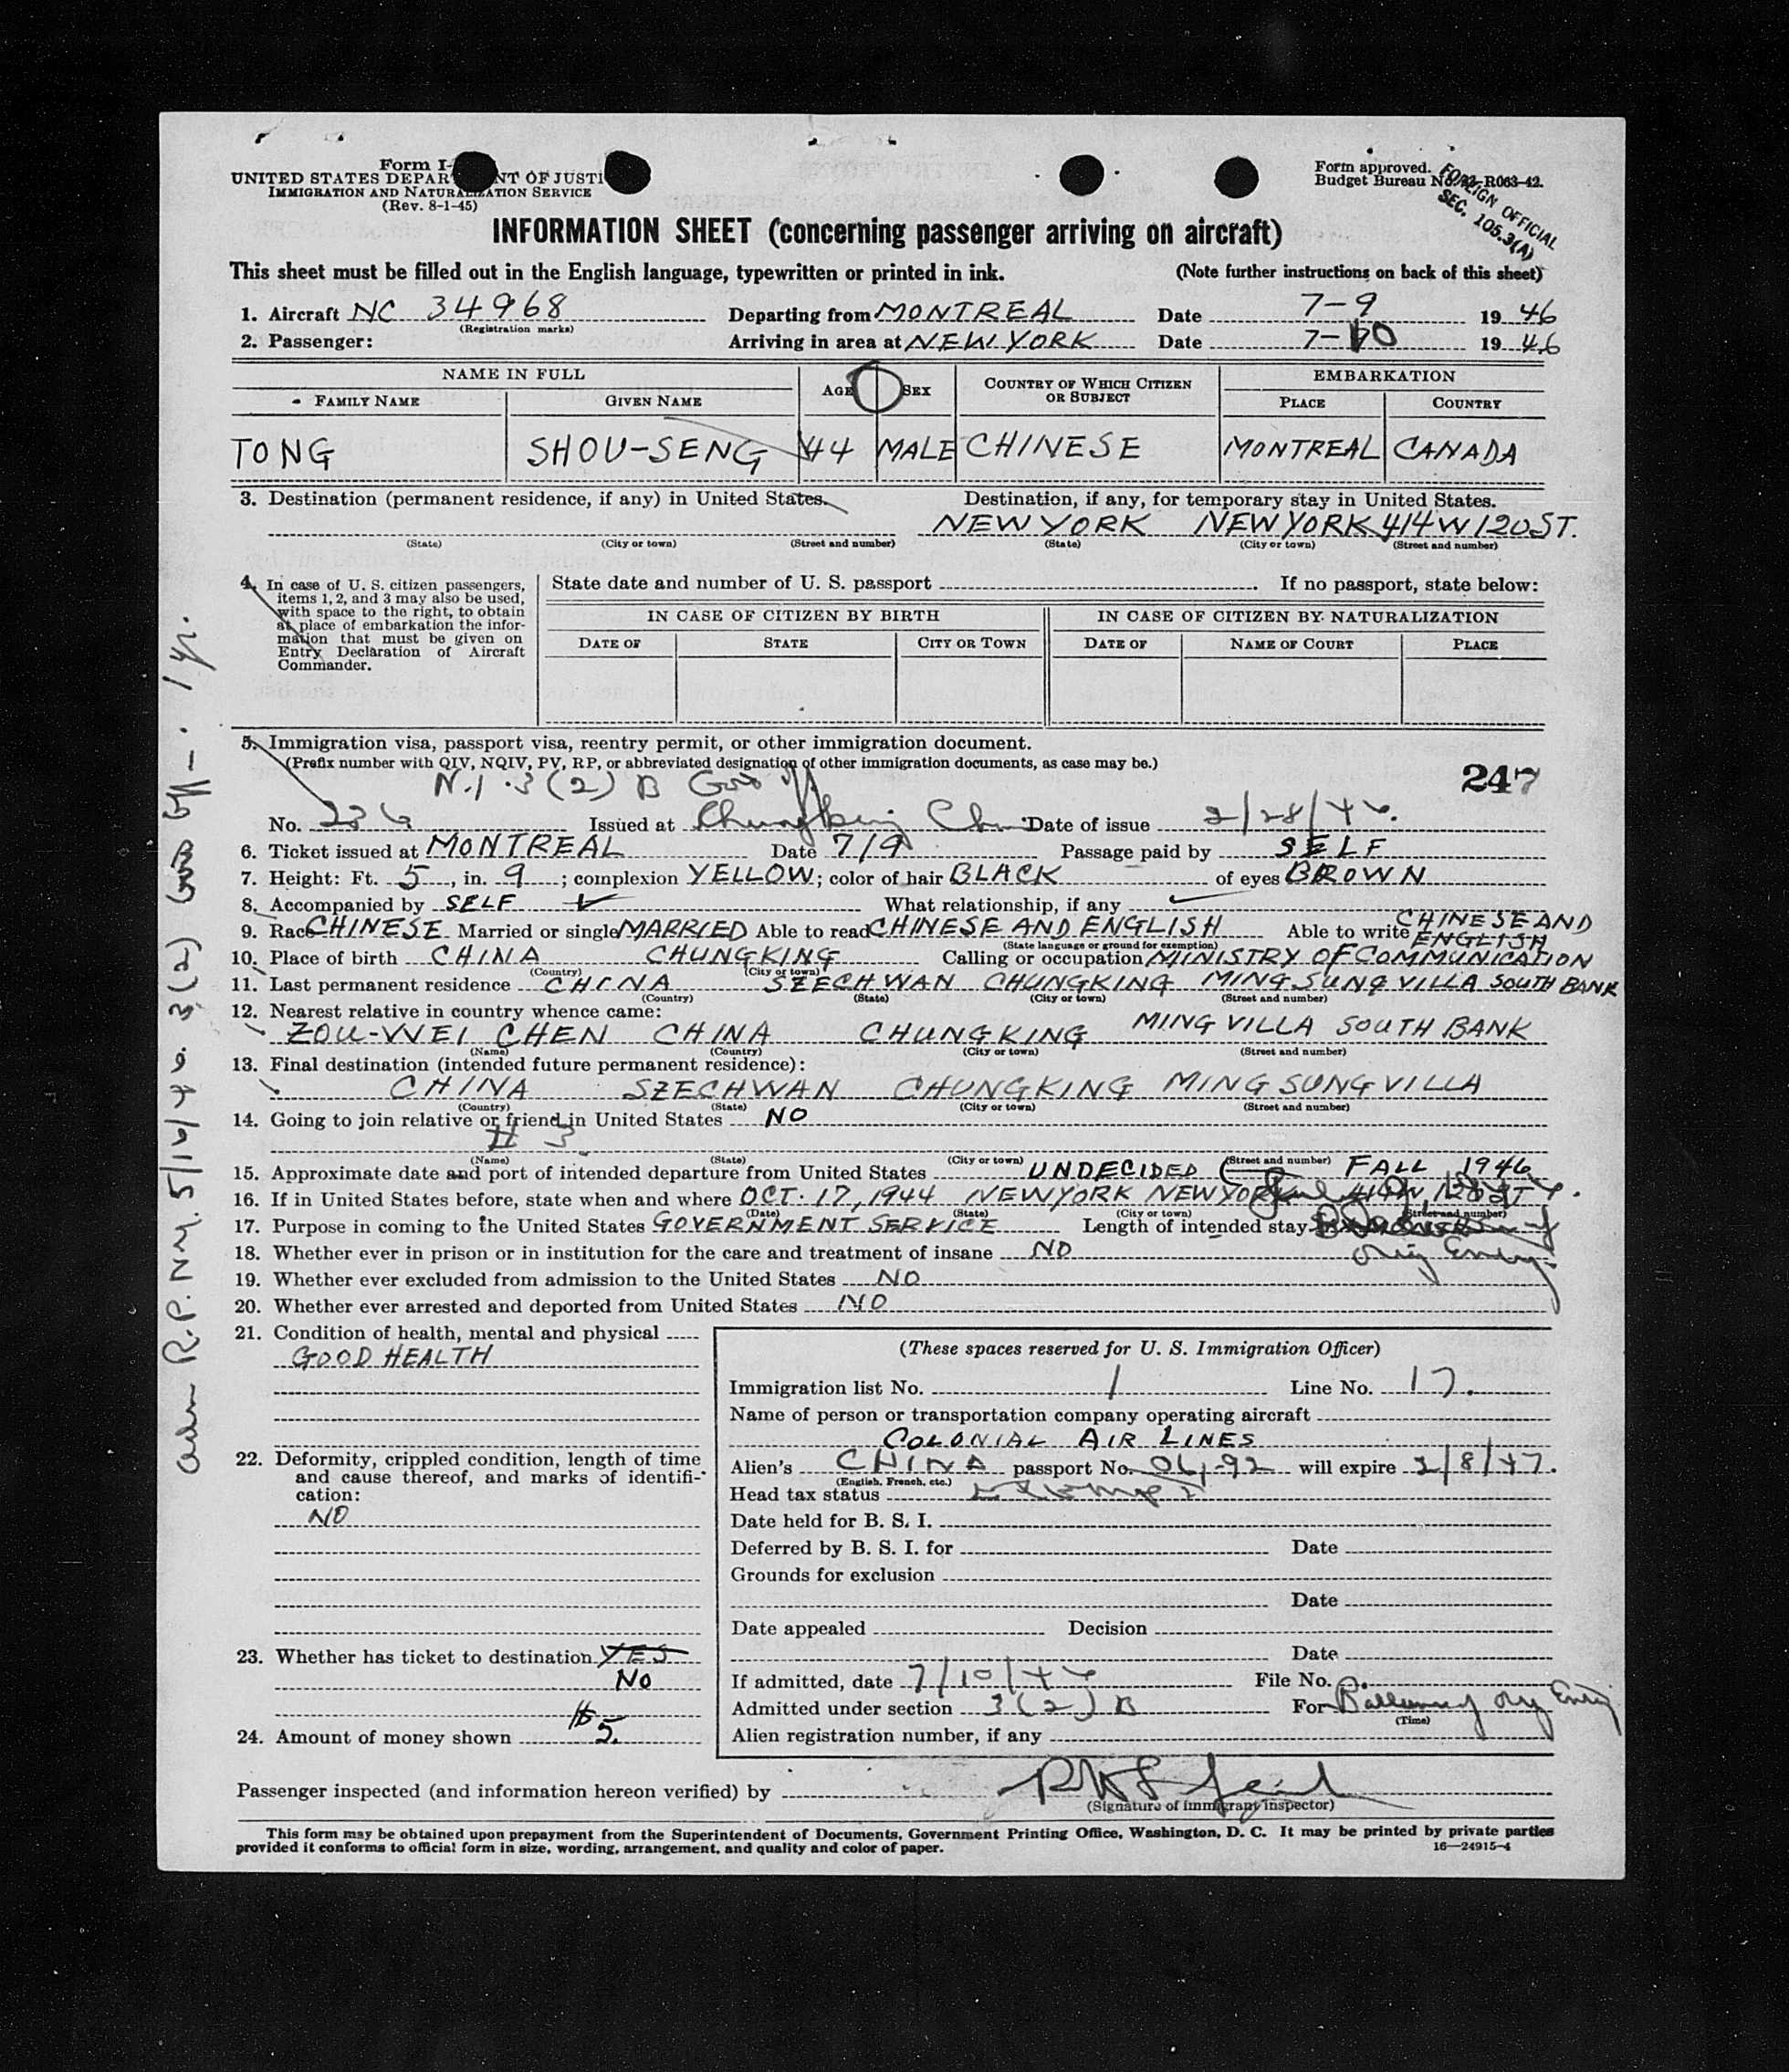 Form I-
UNITED STATES DEPAR NT OF JUSTI
IMMIGRATION AND NATURALIZATION SERVICE
(Rev. 8-1-45)
Form approved.
Budget Bureau No. R063-42.
FOREIGN OFFICIAL
SEC. 105.3(A)
INFORMATION SHEET (concerning passenger arriving on aircraft)
This sheet must be filled out in the English language, typewritten or printed in ink. (Note further instructions on back of this sheet)
1. Aircraft NC 34968 Departing from MONTREAL Date 7-9 1946
(Registration marks)
2. Passenger: Arriving in area at NEW YORK Date 7-10 1946
NAME IN FULL AGE SEX COUNTRY OF WHICH CITIZEN OR SUBJECT EMBARKATION
FAMILY NAME GIVEN NAME PLACE COUNTRY
TONG SHOU-SENG 44 MALE CHINESE MONTREAL CANADA
3. Destination (permanent residence, if any) in United States. Destination, if any, for temporary stay in United States.
NEW YORK NEW YORK 414 W 120 ST.
(State) (City or town) (Street and number) (State) (City or town) (Street and number)
4. In case of U. S. citizen passengers, items 1, 2, and 3 may also be used, with space to the right, to obtain at place of embarkation the information that must be given on Entry Declaration of Aircraft Commander.
State date and number of U. S. passport . If no passport, state below:
IN CASE OF CITIZEN BY BIRTH IN CASE OF CITIZEN BY NATURALIZATION
DATE OF STATE CITY OR TOWN DATE OF NAME OF COURT PLACE
5. Immigration visa, passport visa, reentry permit, or other immigration document.
(Prefix number with QIV, NQIV, PV, RP, or abbreviated designation of other immigration documents, as case may be.)
N.I. 3(2) B 247
No. 236 Issued at Chungking Date of issue 2/28/46.
6. Ticket issued at MONTREAL Date 7/9 Passage paid by SELF
7. Height: Ft. 5, in. 9; complexion YELLOW; color of hair BLACK of eyes BROWN
8. Accompanied by SELF What relationship, if any
9. Race CHINESE Married or single MARRIED Able to read CHINESE AND ENGLISH Able to write CHINESE AND ENGLISH
(State language or ground for exemption)
10. Place of birth CHINA CHUNGKING Calling or occupation MINISTRY OF COMMUNICATION
(Country) (City or town)
11. Last permanent residence CHINA SZECHWAN CHUNGKING MING SUNG VILLA SOUTH BANK
(Country) (State) (City or town) (Street and number)
12. Nearest relative in country whence came:
ZOU-WEI CHEN CHINA CHUNGKING MING VILLA SOUTH BANK
(Name) (Country) (City or town) (Street and number)
13. Final destination (intended future permanent residence):
CHINA SZECHWAN CHUNGKING MING SUNG VILLA
(Country) (State) (City or town) (Street and number)
14. Going to join relative or friend in United States NO
# 3
(Name) (State) (City or town) (Street and number)
15. Approximate date and port of intended departure from United States UNDECIDED FALL 1946
16. If in United States before, state when and where OCT. 17, 1944 NEW YORK NEW YORK 414 W. 120 ST
(Date) (State) (City or town) (Street and number)
17. Purpose in coming to the United States GOVERNMENT SERVICE Length of intended stay
Orig Entry
18. Whether ever in prison or in institution for the care and treatment of insane NO
19. Whether ever excluded from admission to the United States NO
20. Whether ever arrested and deported from United States NO
21. Condition of health, mental and physical
GOOD HEALTH
22. Deformity, crippled condition, length of time and cause thereof, and marks of identification:
NO
23. Whether has ticket to destination YES
No
24. Amount of money shown $5.
(These spaces reserved for U. S. Immigration Officer)
Immigration list No. 1 Line No. 17.
Name of person or transportation company operating aircraft
COLONIAL AIR LINES
Alien's CHINA passport No. will expire 2/8/47.
(English, French, etc.)
Head tax status Exempt
Date held for B. S. I.
Deferred by B. S. I. for Date
Grounds for exclusion
Date
Date appealed Decision
Date
If admitted, date 7/10/46 File No.
Admitted under section 3(2) B For Balance of Orig Entry
(Time)
Alien registration number, if any
Passenger inspected (and information hereon verified) by
(Signature of immigrant inspector)
This form may be obtained upon prepayment from the Superintendent of Documents, Government Printing Office, Washington, D. C. It may be printed by private parties
provided it conforms to official form in size, wording, arrangement, and quality and color of paper. 16—24915-4
Adm R.P. N.Y. 5/16/46. 3(2) 1 yr.